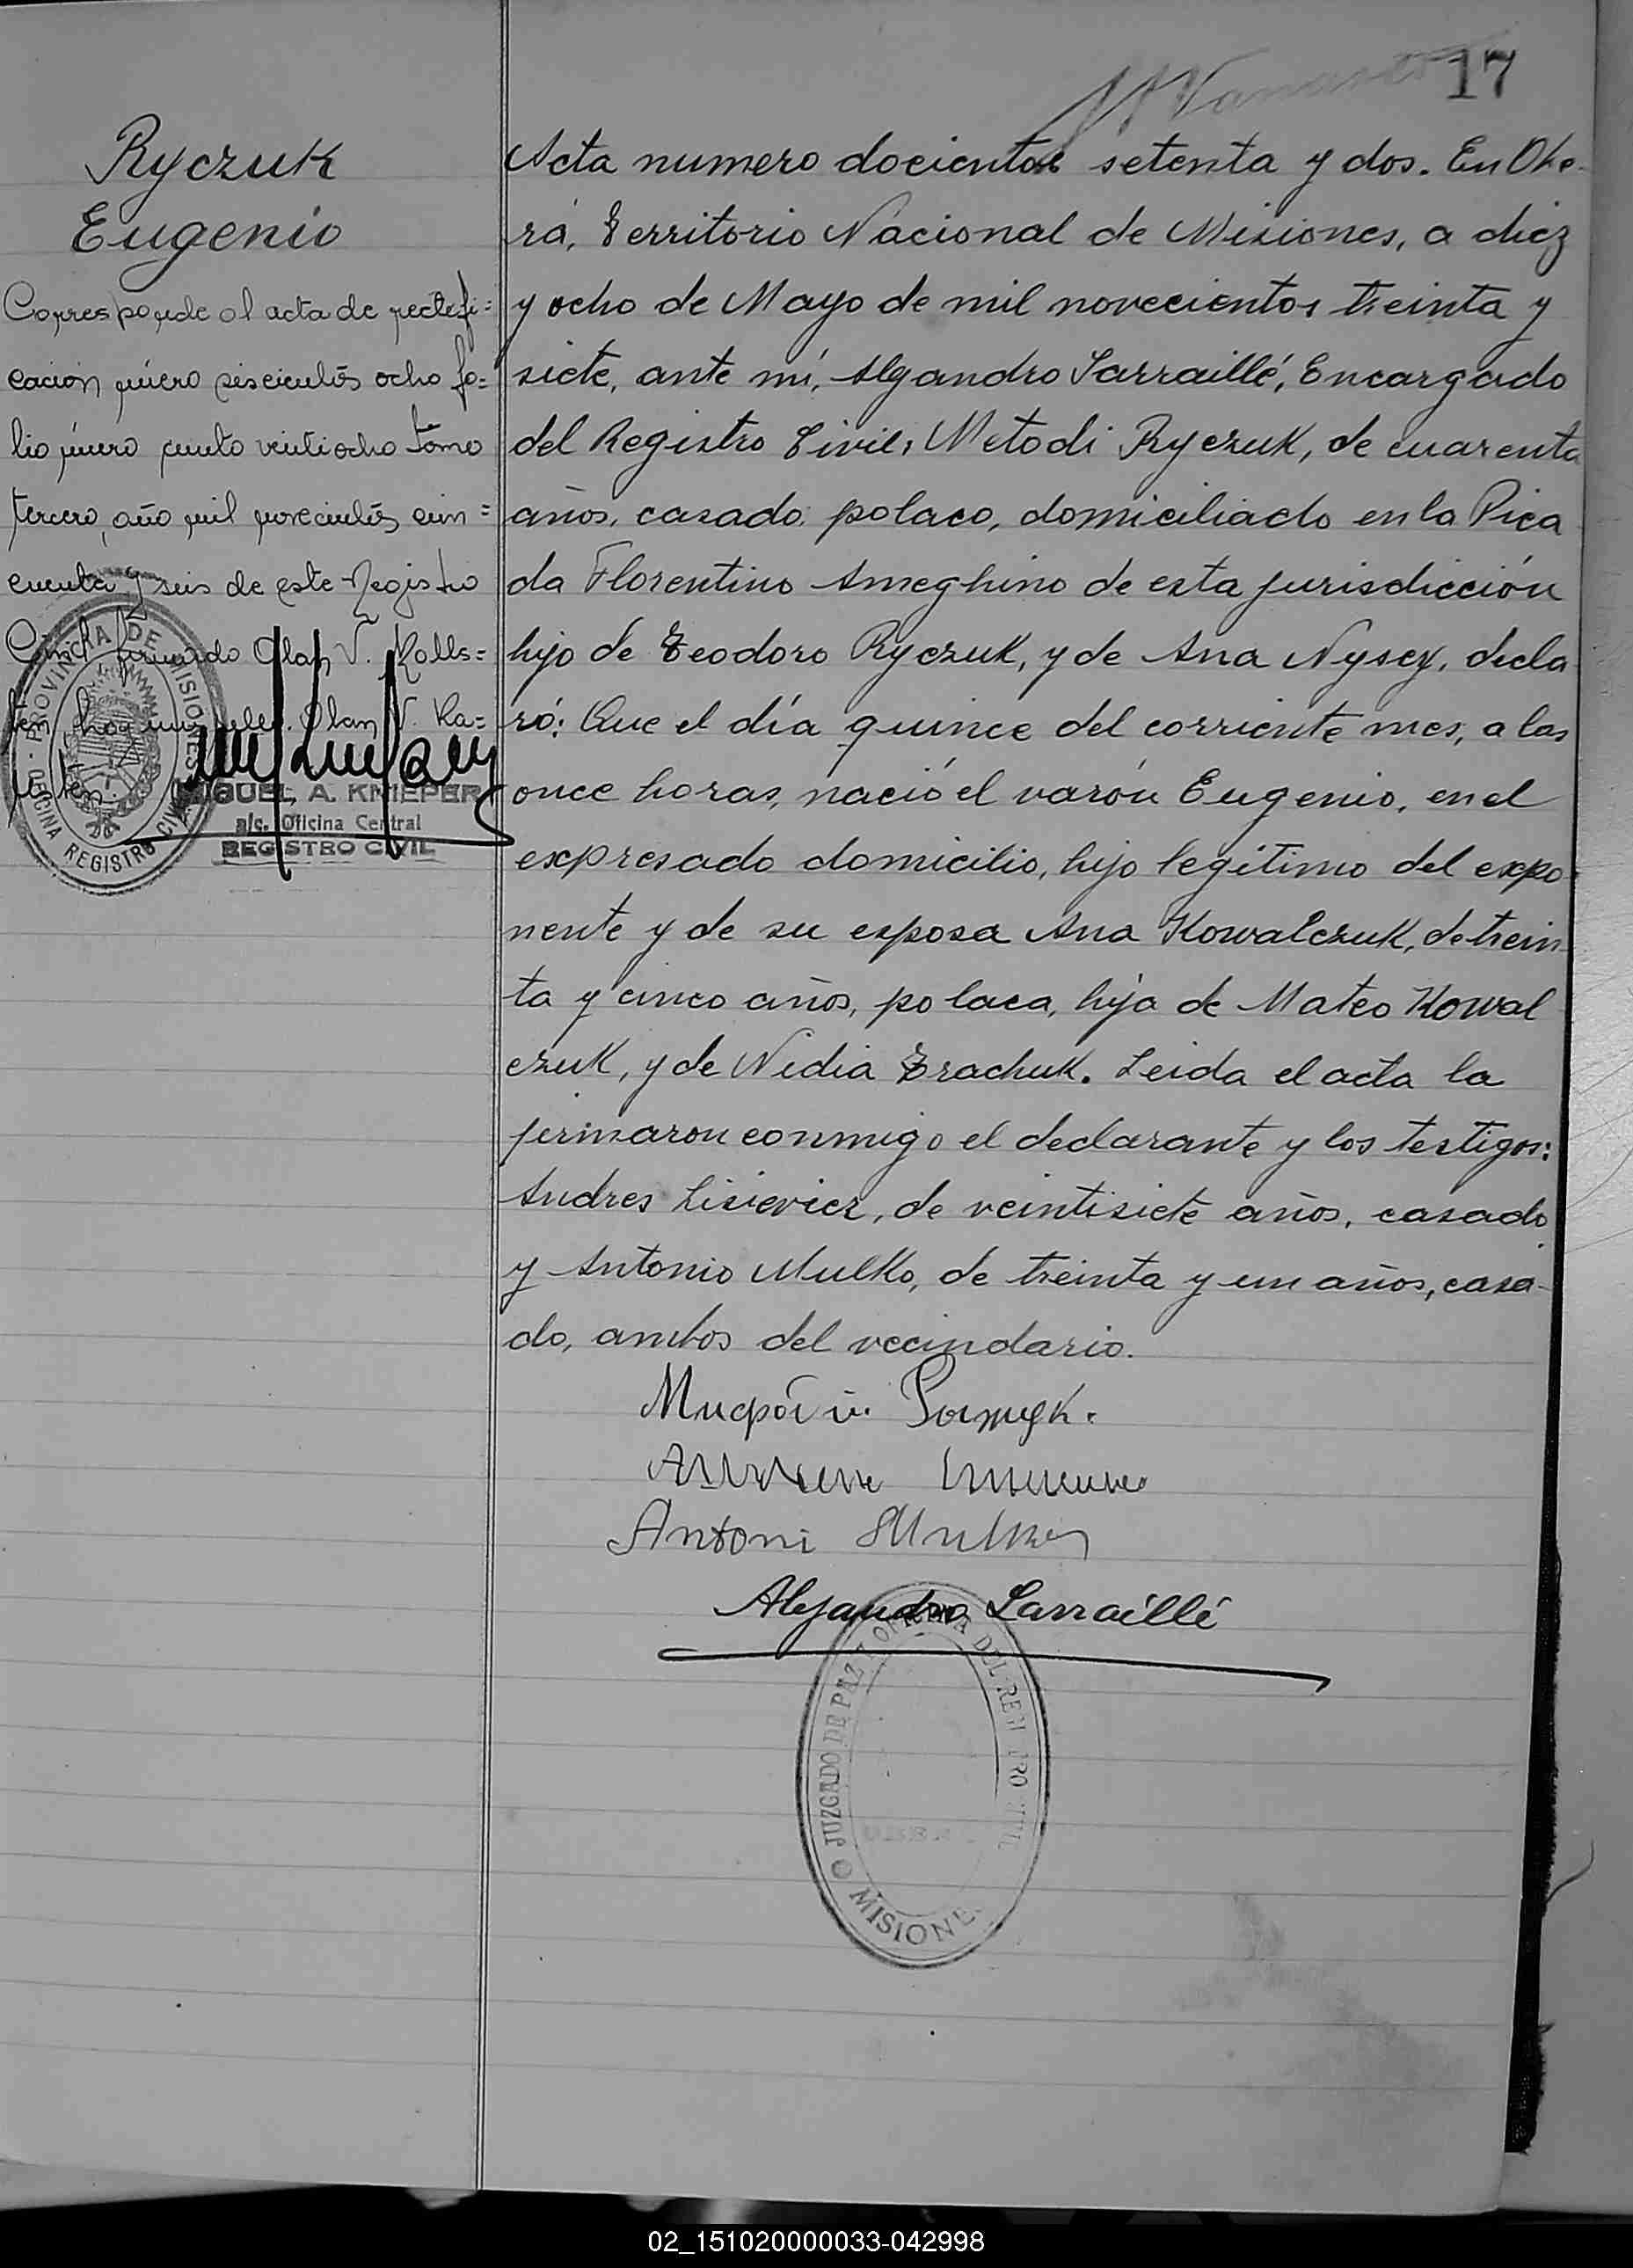 17
Ryczuk
Eugenio
Corresponde al acta de rectifi=
cación número seiscientos ocho fo=
lio número ciento veintiocho tomo
tercero, año mil novecientos cin=
cuenta y seis de este Registro
Civil firmado Olan V.
hoy Olan V. Ka=
PROVINCIA DE MISIONES
OFICINA REGISTRO CIVIL
MIGUEL A. KNIEPER
a/c. Oficina Central
REGISTRO CIVIL
Acta numero docientos setenta y dos. En Obe-
rá, Territorio Nacional de Misiones, a diez
y ocho de Mayo de mil novecientos treinta y
siete, ante mí, Alejandro Larraillé, Encargado
del Registro Civil, Metodi Ryczuk, de cuarenta
años, casado, polaco, domiciliado en la Pica
da Florentino Ameghino de esta jurisdicción
hijo de Teodoro Ryczuk, y de Ana Nysey, decla
ró: Que el día quince del corriente mes, a las
once horas, nació el varón Eugenio, en el
expresado domicilio, hijo legítimo del expo-
nente y de su esposa Ana Kowalczuk, de trein
ta y cinco años, polaca, hija de Mateo Kowal
czuk, y de Nidia Trachuk. Leida el acta la
firmaron conmigo el declarante y los testigos:
Andres Lisievicz, de veintisiete años, casado
y Antonio Mulko, de treinta y un años, casa-
do, ambos del vecindario.
Antoni
Alejandro Larraillé
JUZGADO DE PAZ Y OFICINA DEL REGISTRO CIVIL
MISIONES
02_151020000033-042998